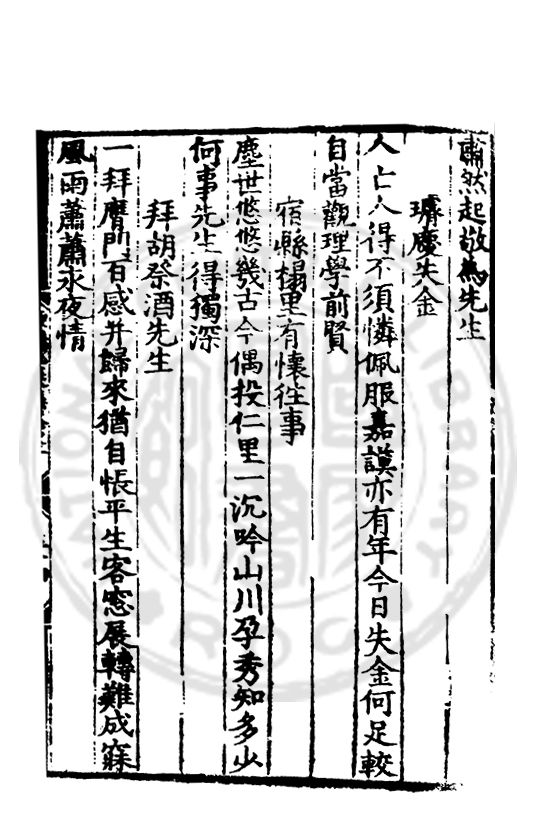 肅然起敬為先生
璿慶失金
人亡人得不須憐佩服嘉謨亦有年今日失金何足較
自當觀理學前賢
宿縣榻里有懷往事
塵世悠悠幾古今偶投仁里一沉吟山川孕秀知多少
何事先生得獨深
拜胡祭酒先生
一拜膺門百感并歸來猶自悵平生客窓展轉難成寐
風雨蕭蕭永夜情